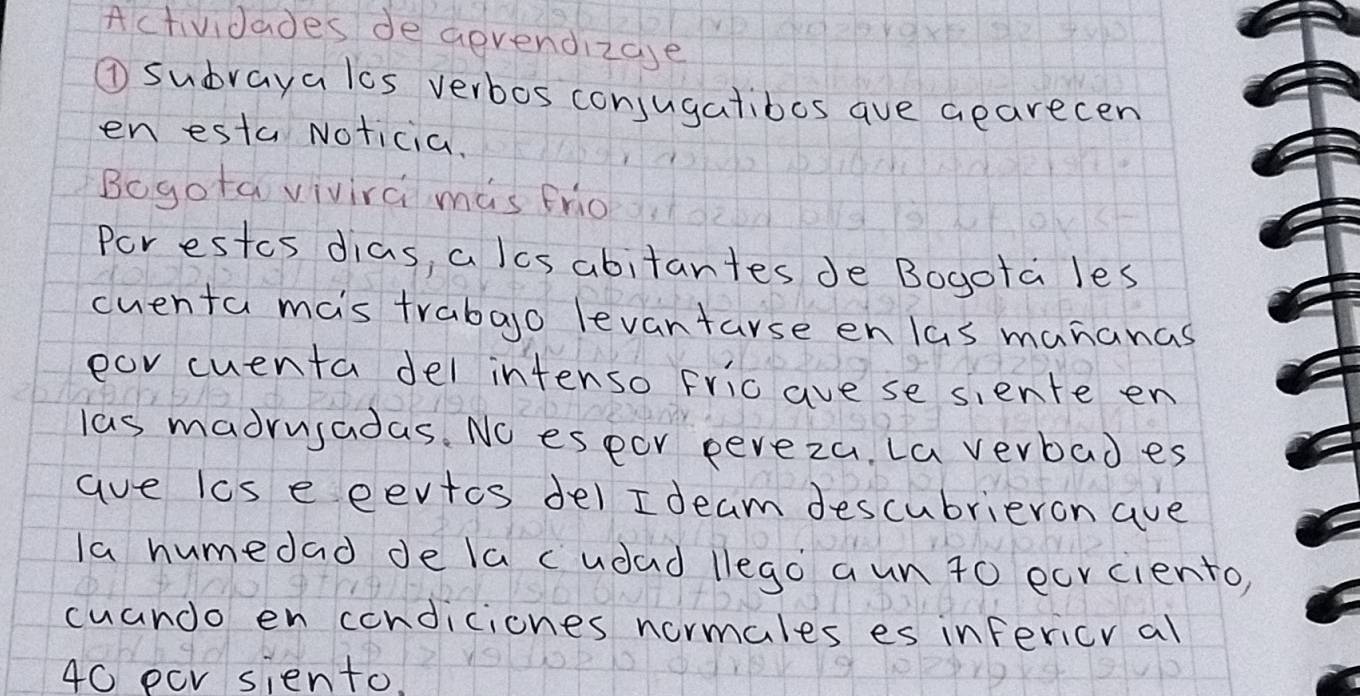 Actividades de aprendizaje
① subraya los verbos conjugatibos que aparecen
en esta Noticia.
Bogota vivirá más frío
Por estos dias, a los abitantes de Bogotá les
cuenta más trabajo levantarse en las mañanas
por cuenta del intenso frio que se siente en
las madrugadas. No es por pereza. La verbad es
que los e pertos del Ideam descubrieron que
la humedad de la c udad llegó a un 70 por ciento,
cuando en condiciones normales es inferior al
40 por siento.